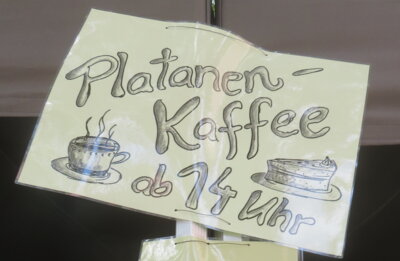 Platanen-
Kaffee
ab 14 Uhr